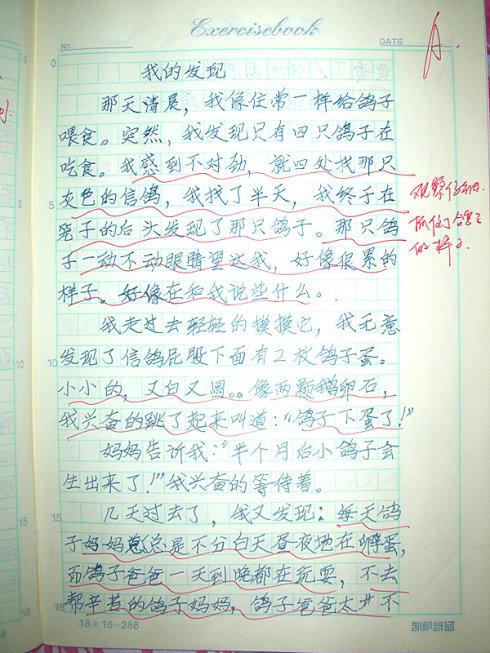 Exercisebook
NO.
DATE
A.
0
0
我的发现
那天清晨，我像住常一样给鸽子
喂食。突然，我发现只有四只鸽子在
吃食。我感到不对劲，就四处找那只
灰色的信鸽，我找了半天，我终于在
5
5
窝子的后头发现了那只鸽子。那只鸽
子一动不动眼睛望这我，好像很累的
样子。好像在和我说些什么。
我走过去轻轻的摸摸它，我无意
发现了信鸽屁股下面有2枚鸽子蛋。
10
10
小小的，又白又圆。像两颗鹅卵石，
我兴奋的跳了起来叫道：“鸽子下蛋了！”
妈妈告诉我：“半个月后小鸽子会
生出来了！”我兴奋的等侍着。
几天过去了，我又发现：每天鸽
15
15
子妈妈总是不分白天昼夜地在孵蛋，
而鸽子爸爸一天到晚都在玩耍，不去
帮辛苦的鸽子妈妈，鸽子爸爸太不
18
18×16=288
观察仔细。
抓住了鸽子
的样子。